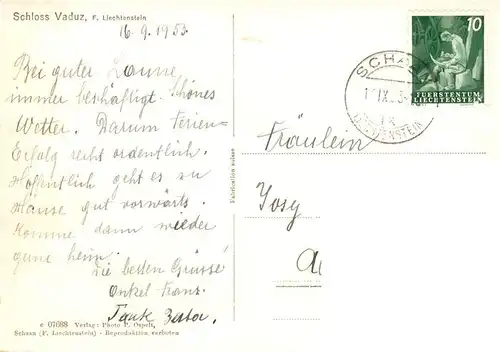 Schloss Vaduz, F. Liechtenstein
16.9.1953
Bei guter Laune,
immer beschäftigt. Schönes
Wetter. Darum Ferien-
Erfolg recht ordentlich.
Hoffentlich geht es zu
Hause gut vorwärts.
Komme dann wieder
gerne heim.
Die besten Grüsse
Onkel Franz.
Tante
c 07688 Verlag: Photo P. Ospelt,
Schaan (F. Liechtenstein) - Reproduktion verboten
Fabrication suisse
10
FÜRSTENTUM
LIECHTENSTEIN
SCHAAN
LIECHTENSTEIN
Fräulein
Josy